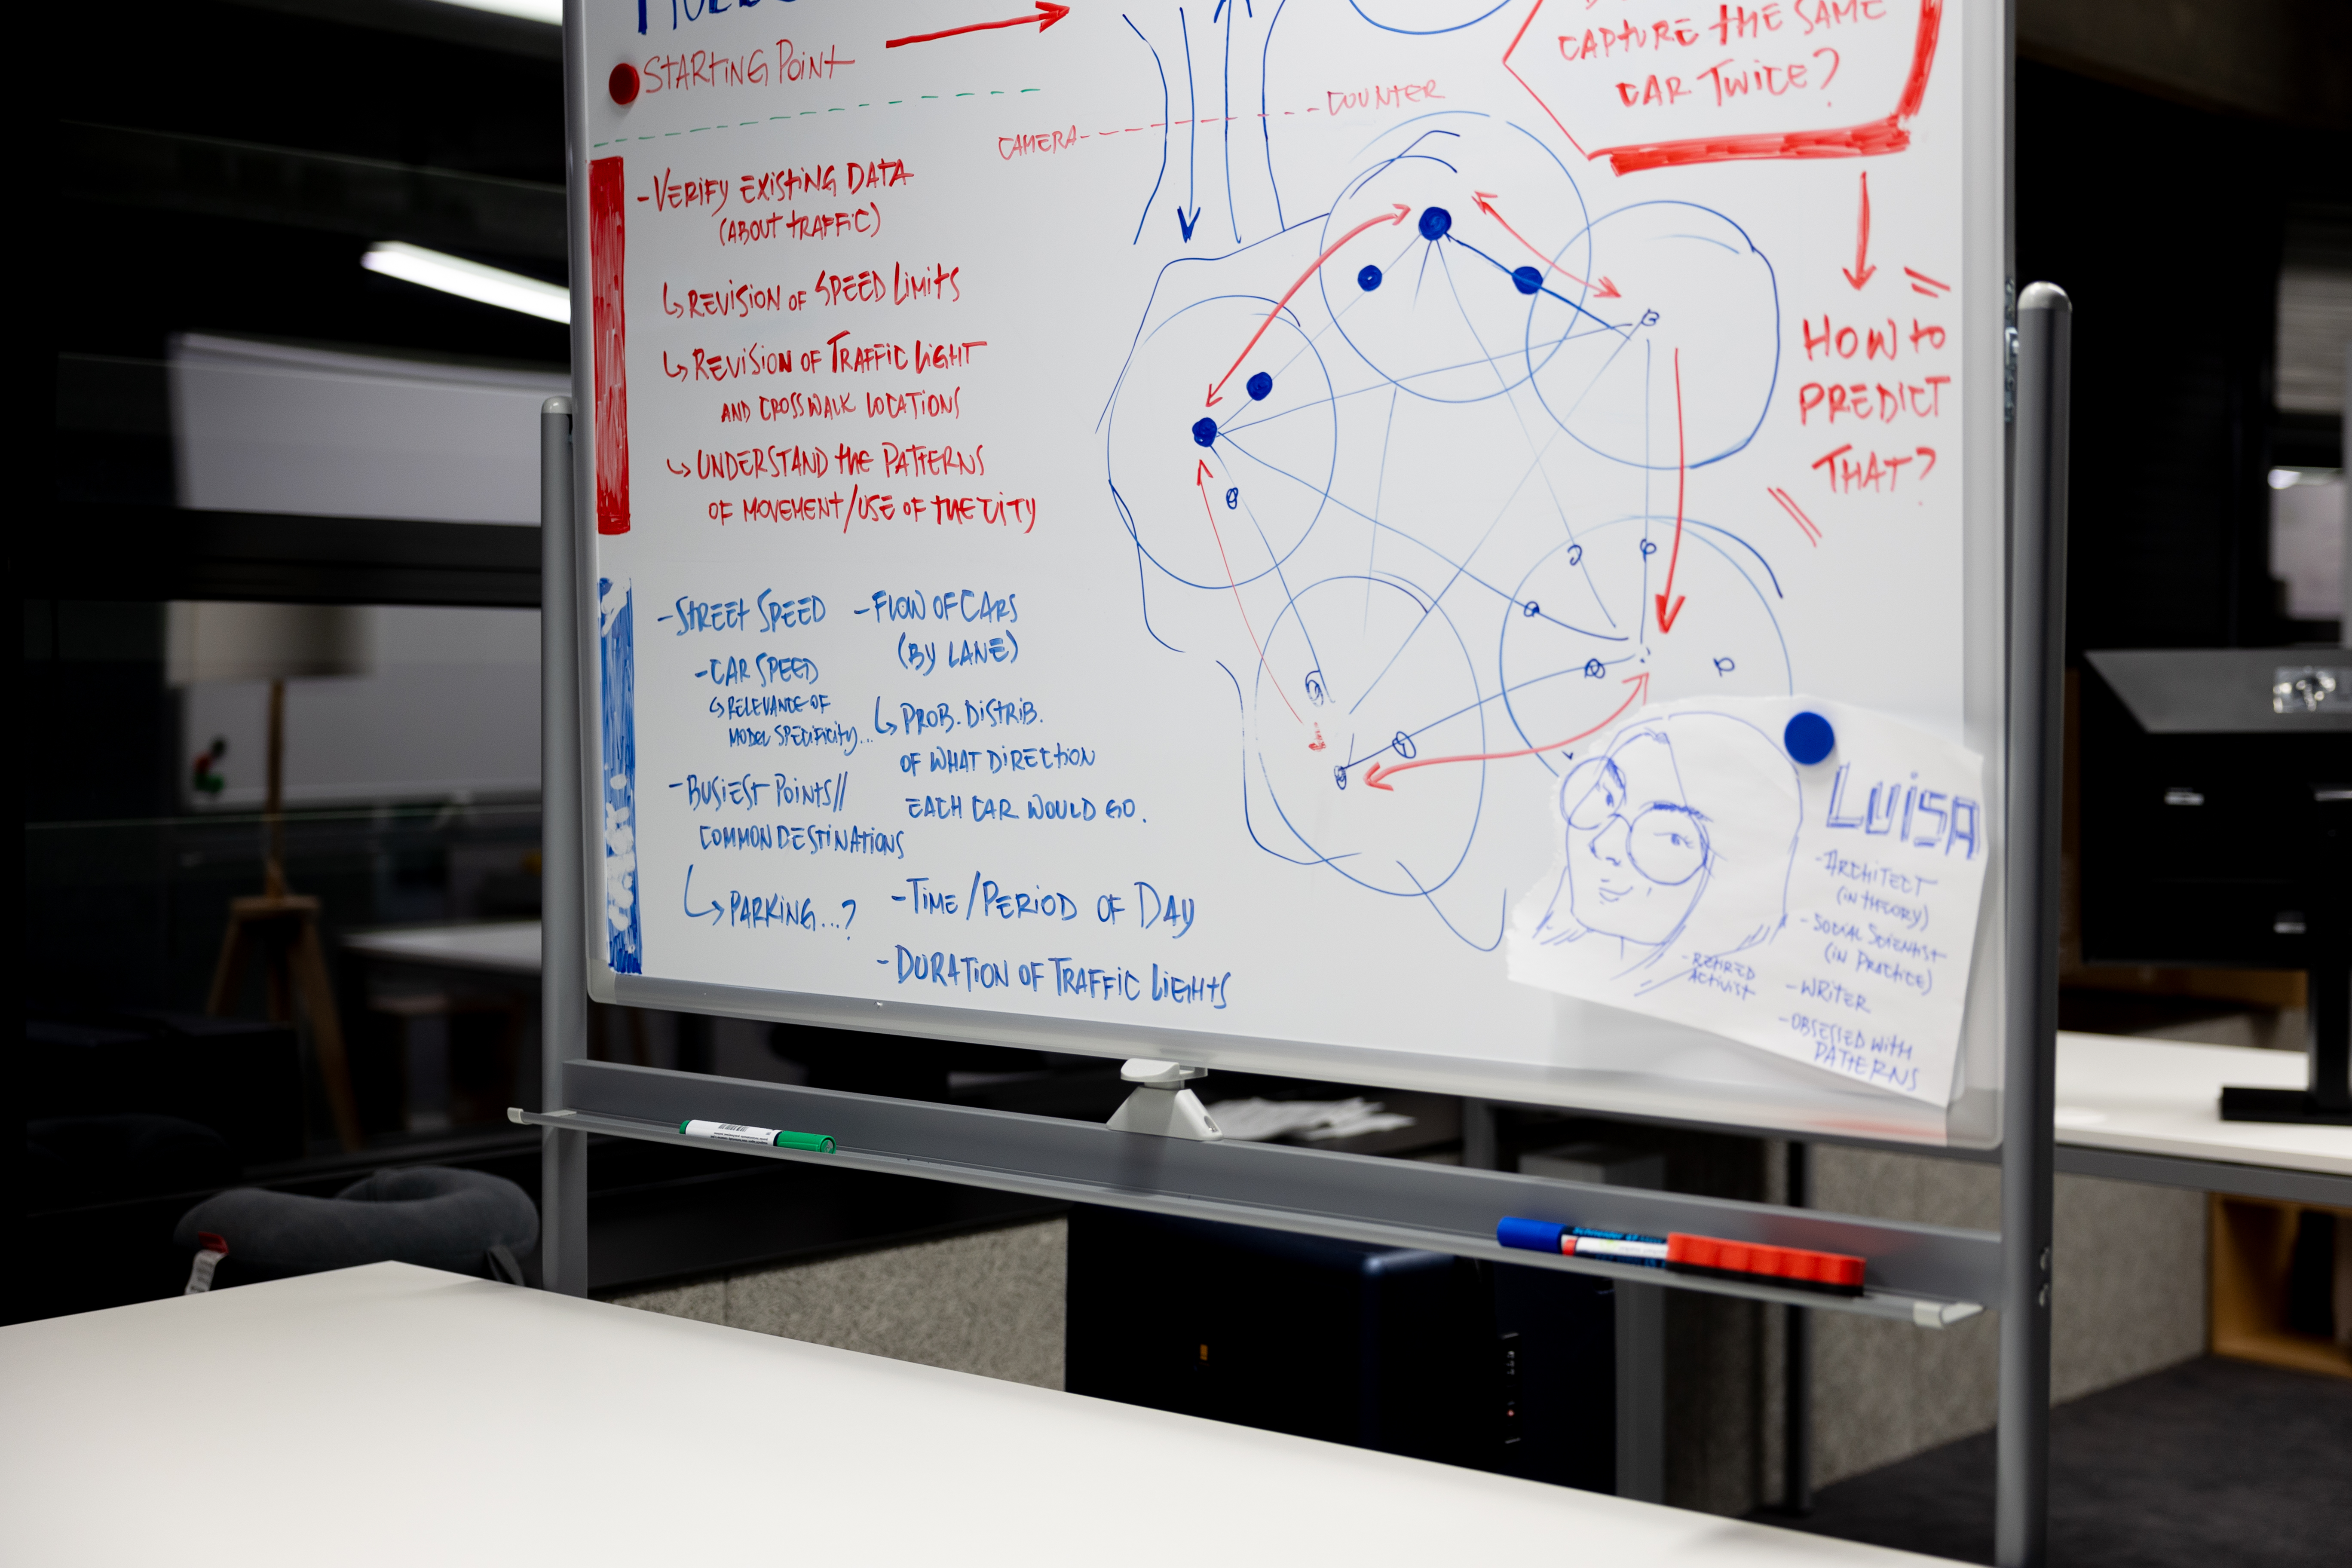 STARTING POINT
CAMERA
COUNTER
CAPTURE THE SAME
CAR TWICE?
HOW TO
PREDICT
THAT?
-VERIFY EXISTING DATA
(ABOUT TRAFFIC)
↳REVISION OF SPEED LIMITS
↳REVISION OF TRAFFIC LIGHT
AND CROSSWALK LOCATIONS
↳UNDERSTAND THE PATTERNS
OF MOVEMENT/USE OF THE CITY
-STREET SPEED
-CAR SPEED
↳RELEVANCE OF
MODEL SPECIFICITY...
-BUSIEST POINTS//
COMMON DESTINATIONS
↳PARKING...?
-FLOW OF CARS
(BY LANE)
↳PROB. DISTRIB.
OF WHAT DIRECTION
EACH CAR WOULD GO.
-TIME/PERIOD OF DAY
-DURATION OF TRAFFIC LIGHTS
LUISA
-ARCHITECT
(IN THEORY)
-SOCIAL SCIENTIST
(IN PRACTICE)
-WRITER
-OBSESSED WITH
PATTERNS
-RETIRED
ACTIVIST